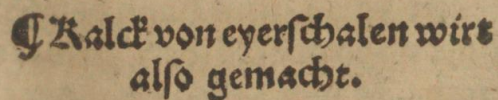 ¶ Kalck von eyerſchalen wirt
alſo gemacht.